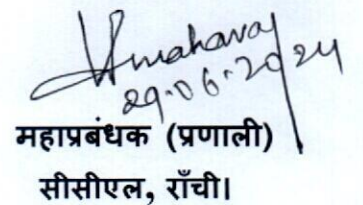 29.06.2024
महाप्रबंधक (प्रणाली)
सीसीएल, राँची।